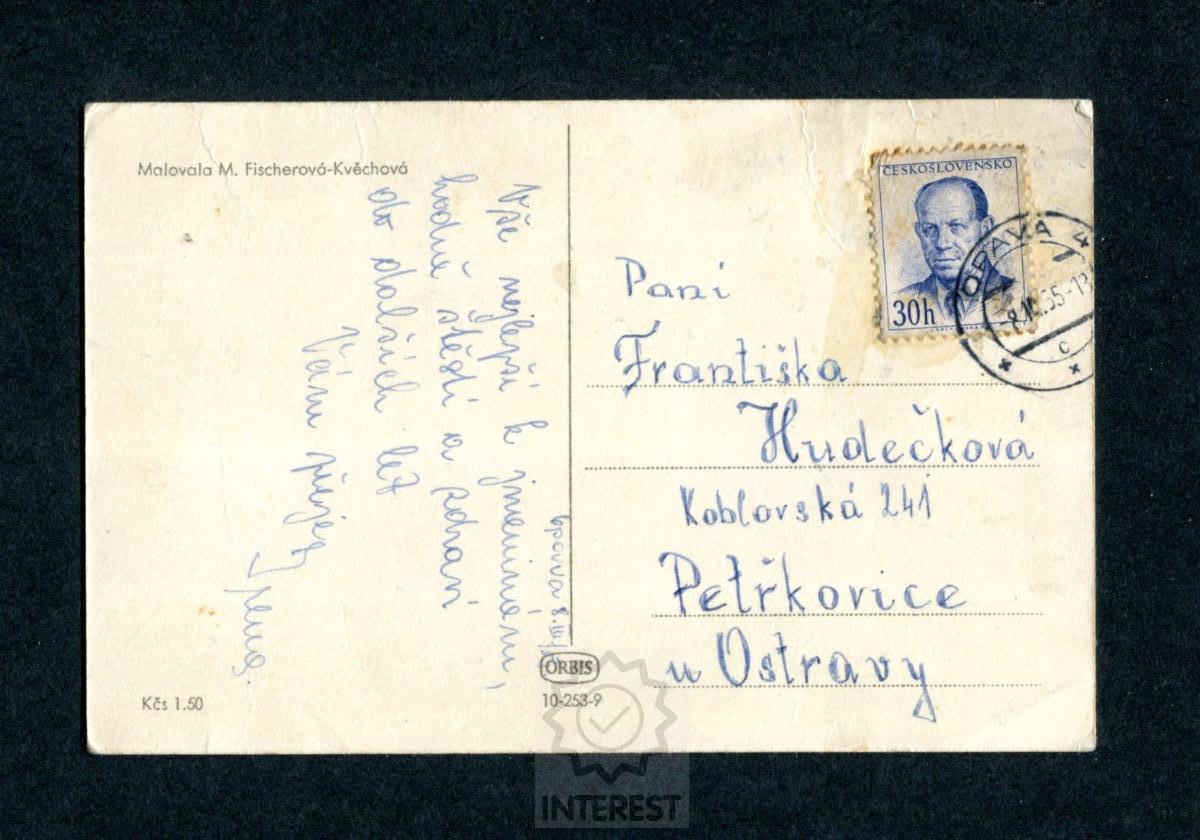 Malovala M. Fischerová-Kvěchová
Opava 8.III.
Vše nejlepší k jmeninám,
hodně štěstí a zdraví
do dalších let
Vám přeje
Irena.
Kčs 1.50
ORBIS
10-253-9
ČESKOSLOVENSKO
30h
OPAVA 4
8.III.55-13
c
Paní
Františka
Hudečková
Koblovská 241
Petřkovice
u Ostravy
INTEREST